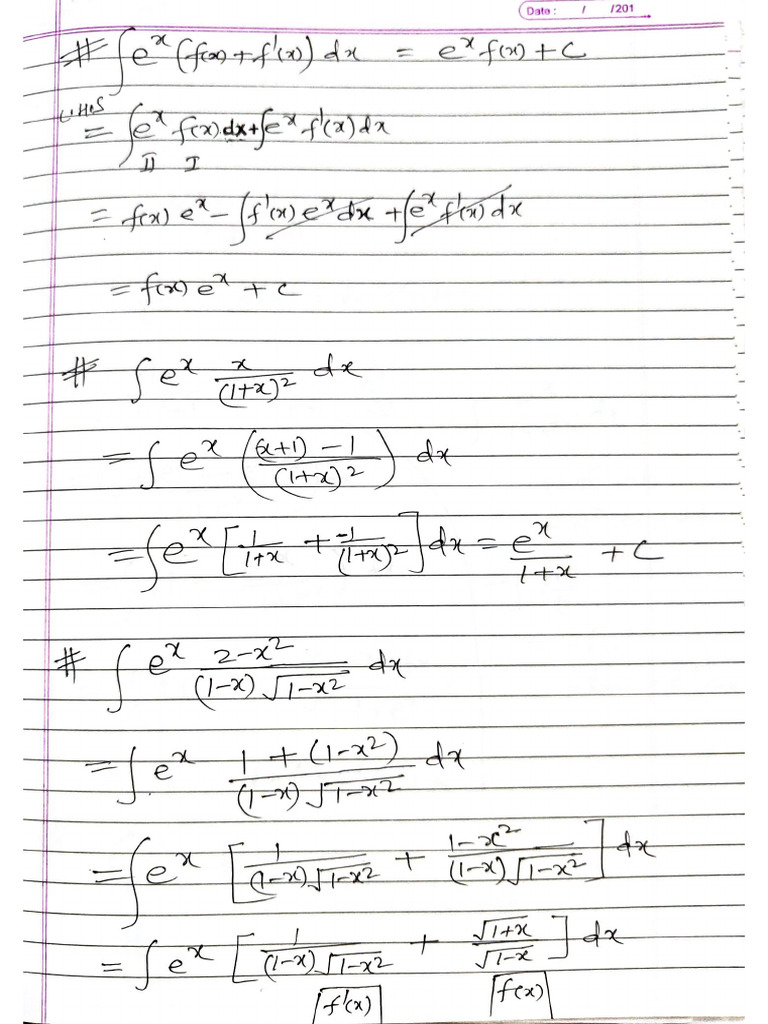 Date : / /201
# ∫ e^x (f(x) + f'(x)) dx = e^x f(x) + C
L.H.S
= ∫ e^x f(x) dx + ∫ e^x f'(x) dx
II I
= f(x) e^x - ∫ f'(x) e^x dx + ∫ e^x f'(x) dx
= f(x) e^x + C
# ∫ e^x x/(1+x)^2 dx
= ∫ e^x ((x+1) - 1)/(1+x)^2 dx
= ∫ e^x [1/(1+x) + -1/(1+x)^2] dx = e^x/(1+x) + C
# ∫ e^x (2-x^2)/((1-x) √(1-x^2)) dx
= ∫ e^x (1 + (1-x^2))/((1-x) √(1-x^2)) dx
= ∫ e^x [1/((1-x) √(1-x^2)) + (1-x^2)/((1-x) √(1-x^2))] dx
= ∫ e^x [1/((1-x) √(1-x^2)) + √(1+x)/√(1-x)] dx
f'(x) f(x)